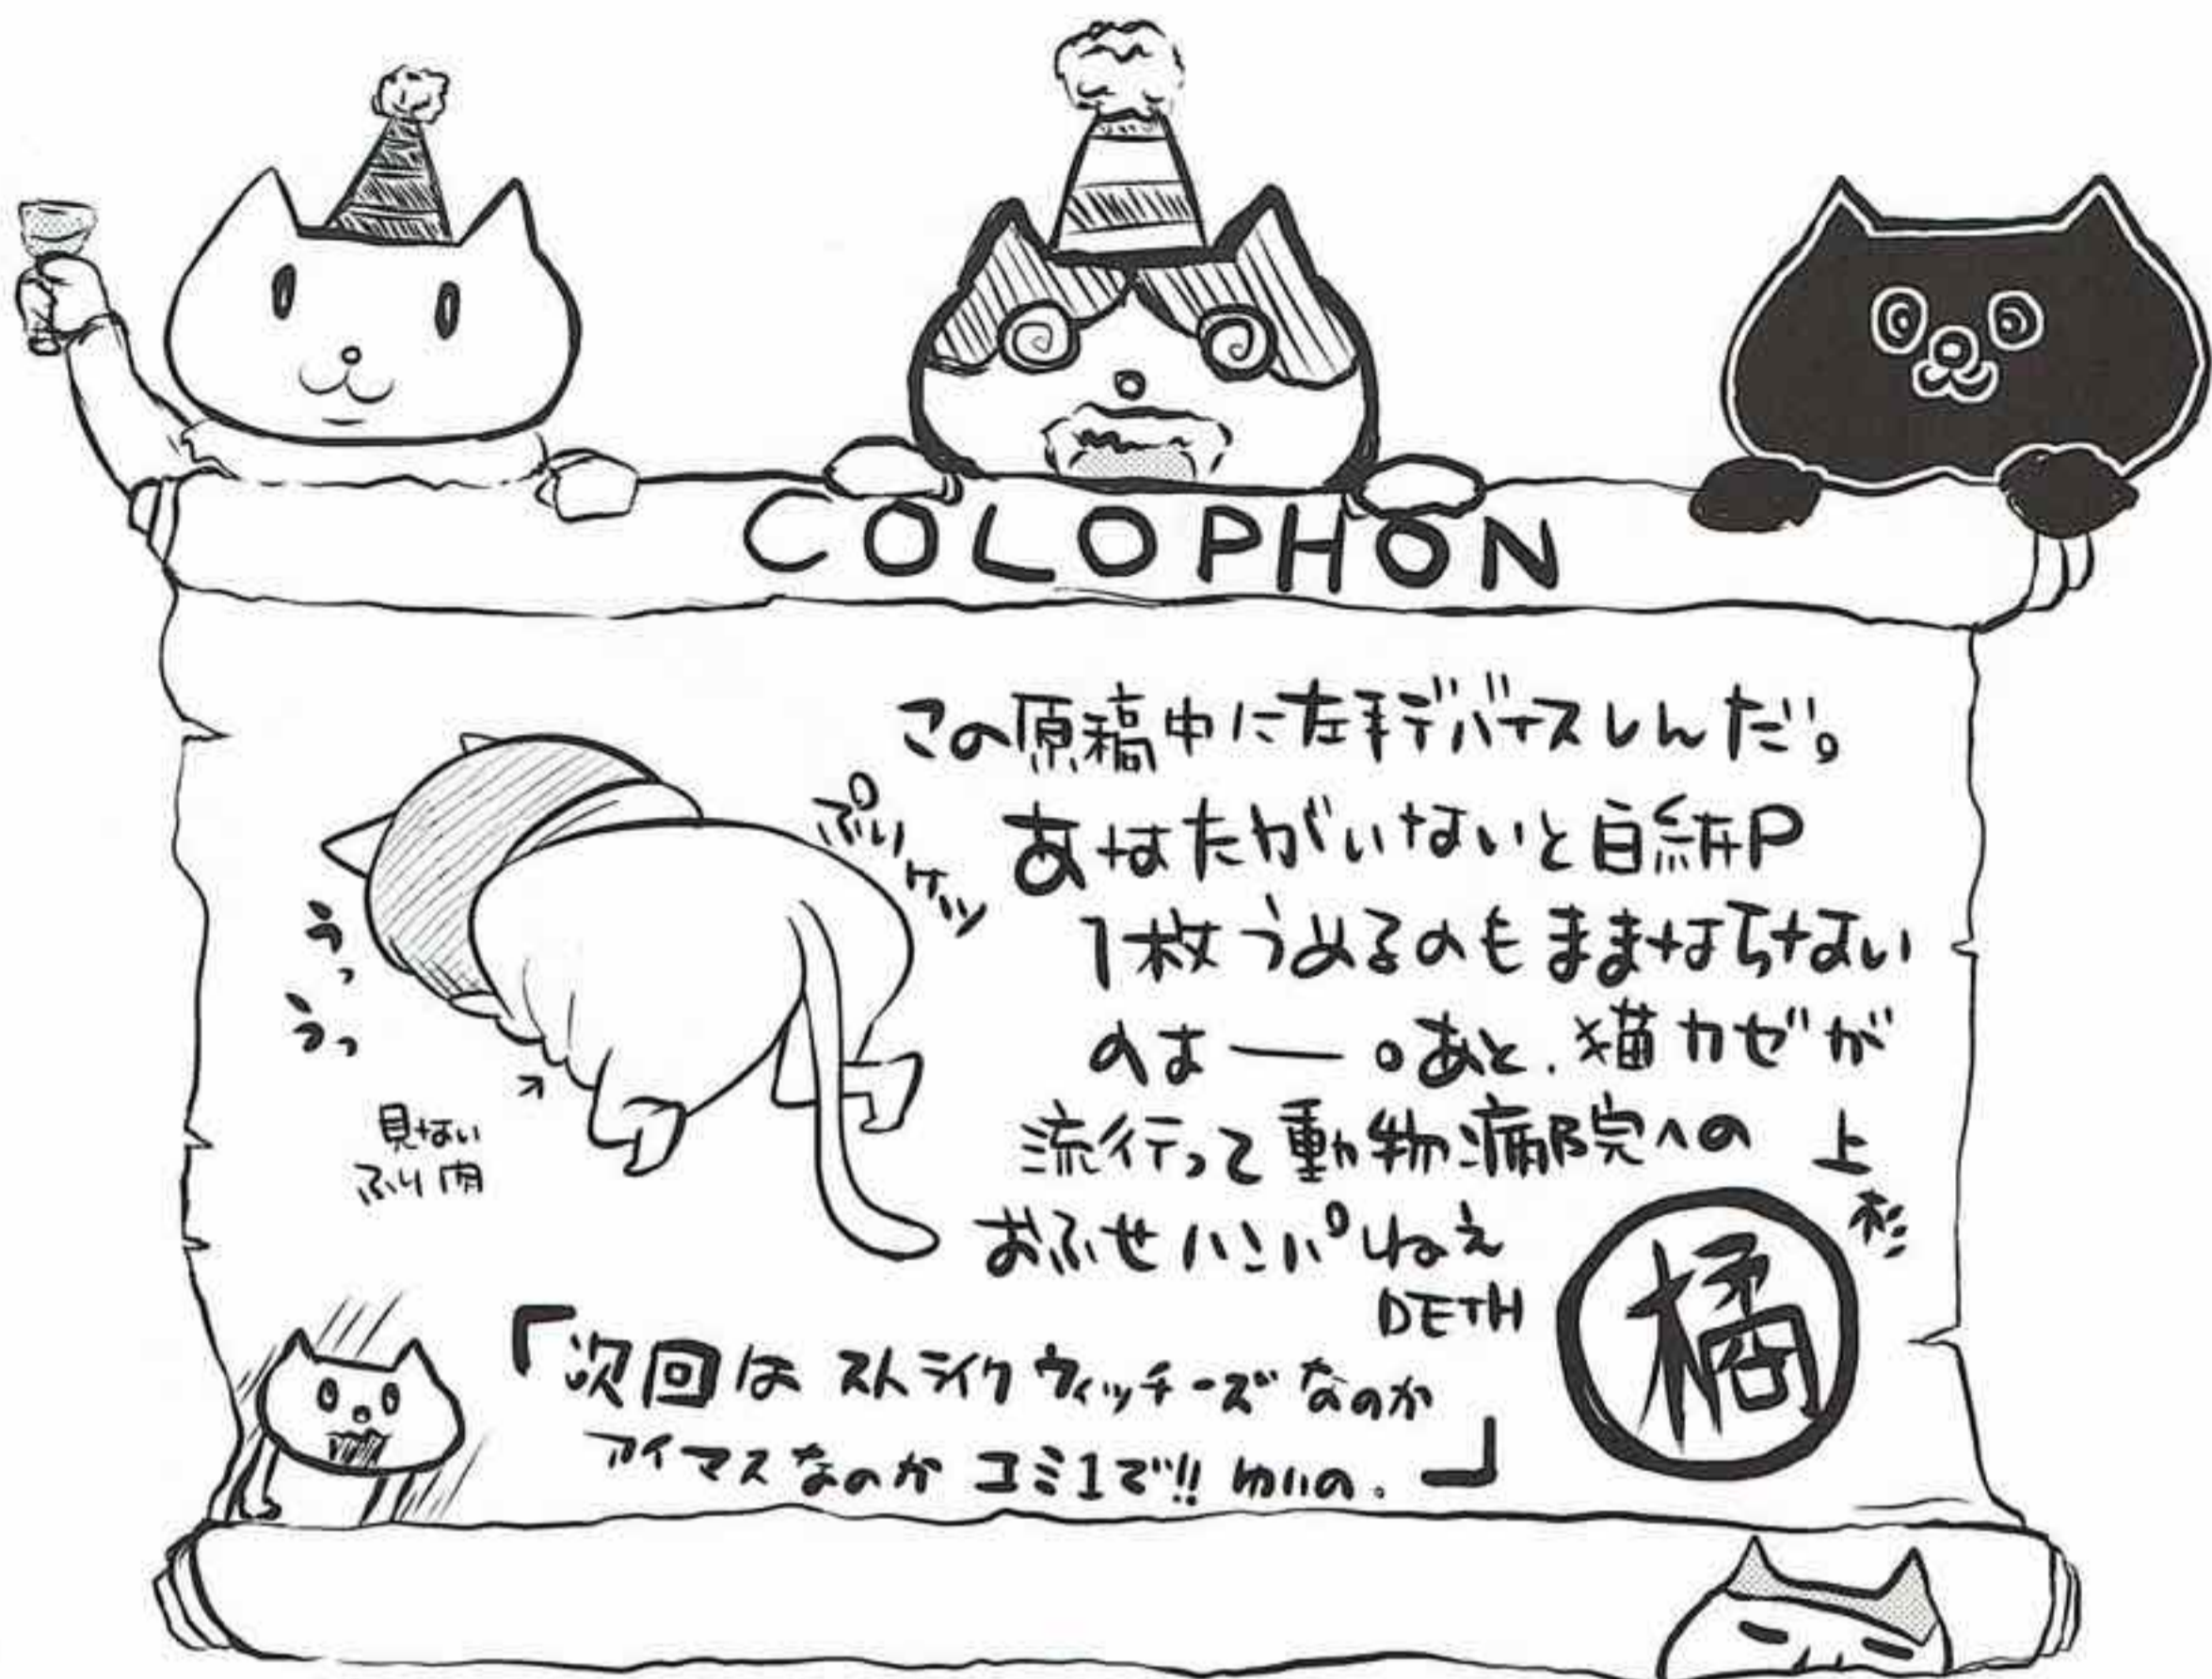 COLOPHON
この原稿中に左手デバイスしんだ。
あなたがいないと白紙P
1枚うめるのもままならない
のよ――。あと、猫カゼが
流行って動物病院への
おふせハンパねえ
DETH
上杉
橘
ぷりケツ
うっ
うっ
見ない
ふり肉
「次回は ストライクウィッチーズなのか
アイマスなのか コミ1で!! ゆいの。」